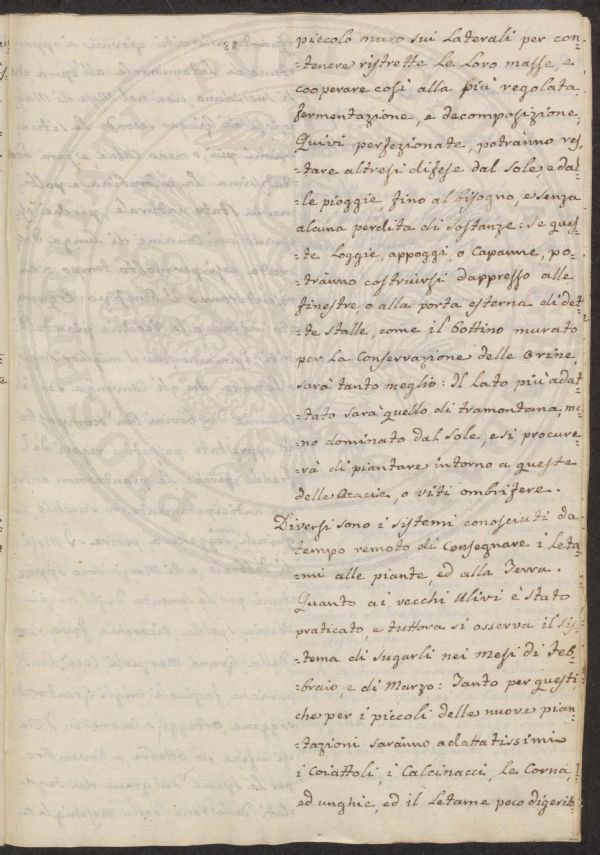 piccolo muro sui Laterali per con=
=tenere ristrette Le Loro masse, e
cooperare così alla più regolata
fermentazione, e decomposizione.
Quivi perfezionate, potranno res=
=tare altresì difese dal Sole e dal=
=le pioggie fino al bisogno, e senza
alcuna perdita di Sostanze: Se ques=
=te Loggie, appoggi, o Capanne, po=
=tranno costruirsi dappresso alle
finestre, o alla porta esterna di det=
=te Stalle, come il bottino murato
per La Conservazione delle Orine,
sarà tanto meglio: Il Lato più adat=
=tato sarà quello di tramontana me=
=no dominato dal Sole, e si procure=
=rà di piantare intorno a queste
delle Acacie, o viti ombrifere.
Diversi sono i sistemi conosciuti da
tempo remoto di Consegnare i Leta=
=mi alle piante, ed alla Terra.
Quanto ai vecchi Ulivi è stato
praticato, e tuttora si osserva il sis=
=tema di sugarli nei Mesi di Feb=
=braio, e di Marzo: Tanto per questi
che per i piccoli delle nuove pian=
=tazioni saranno adattatissimi
i Coiattoli, i Calcinacci, Le Corna,
ed unghie, ed il Letame poco digerito